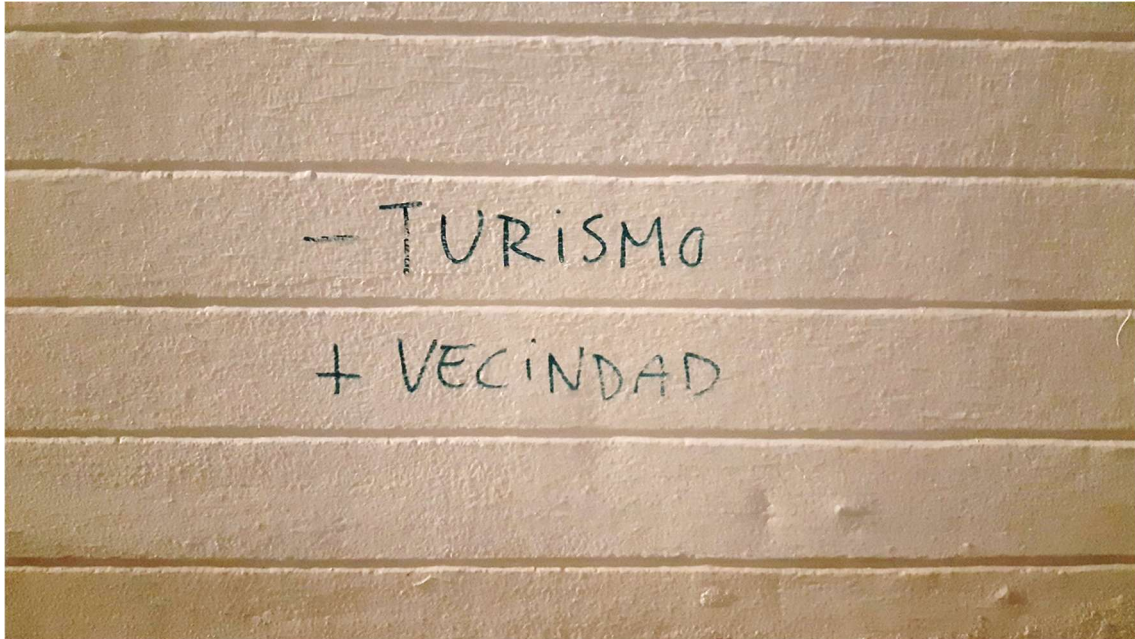 - TURiSMO
+ VECiNDAD